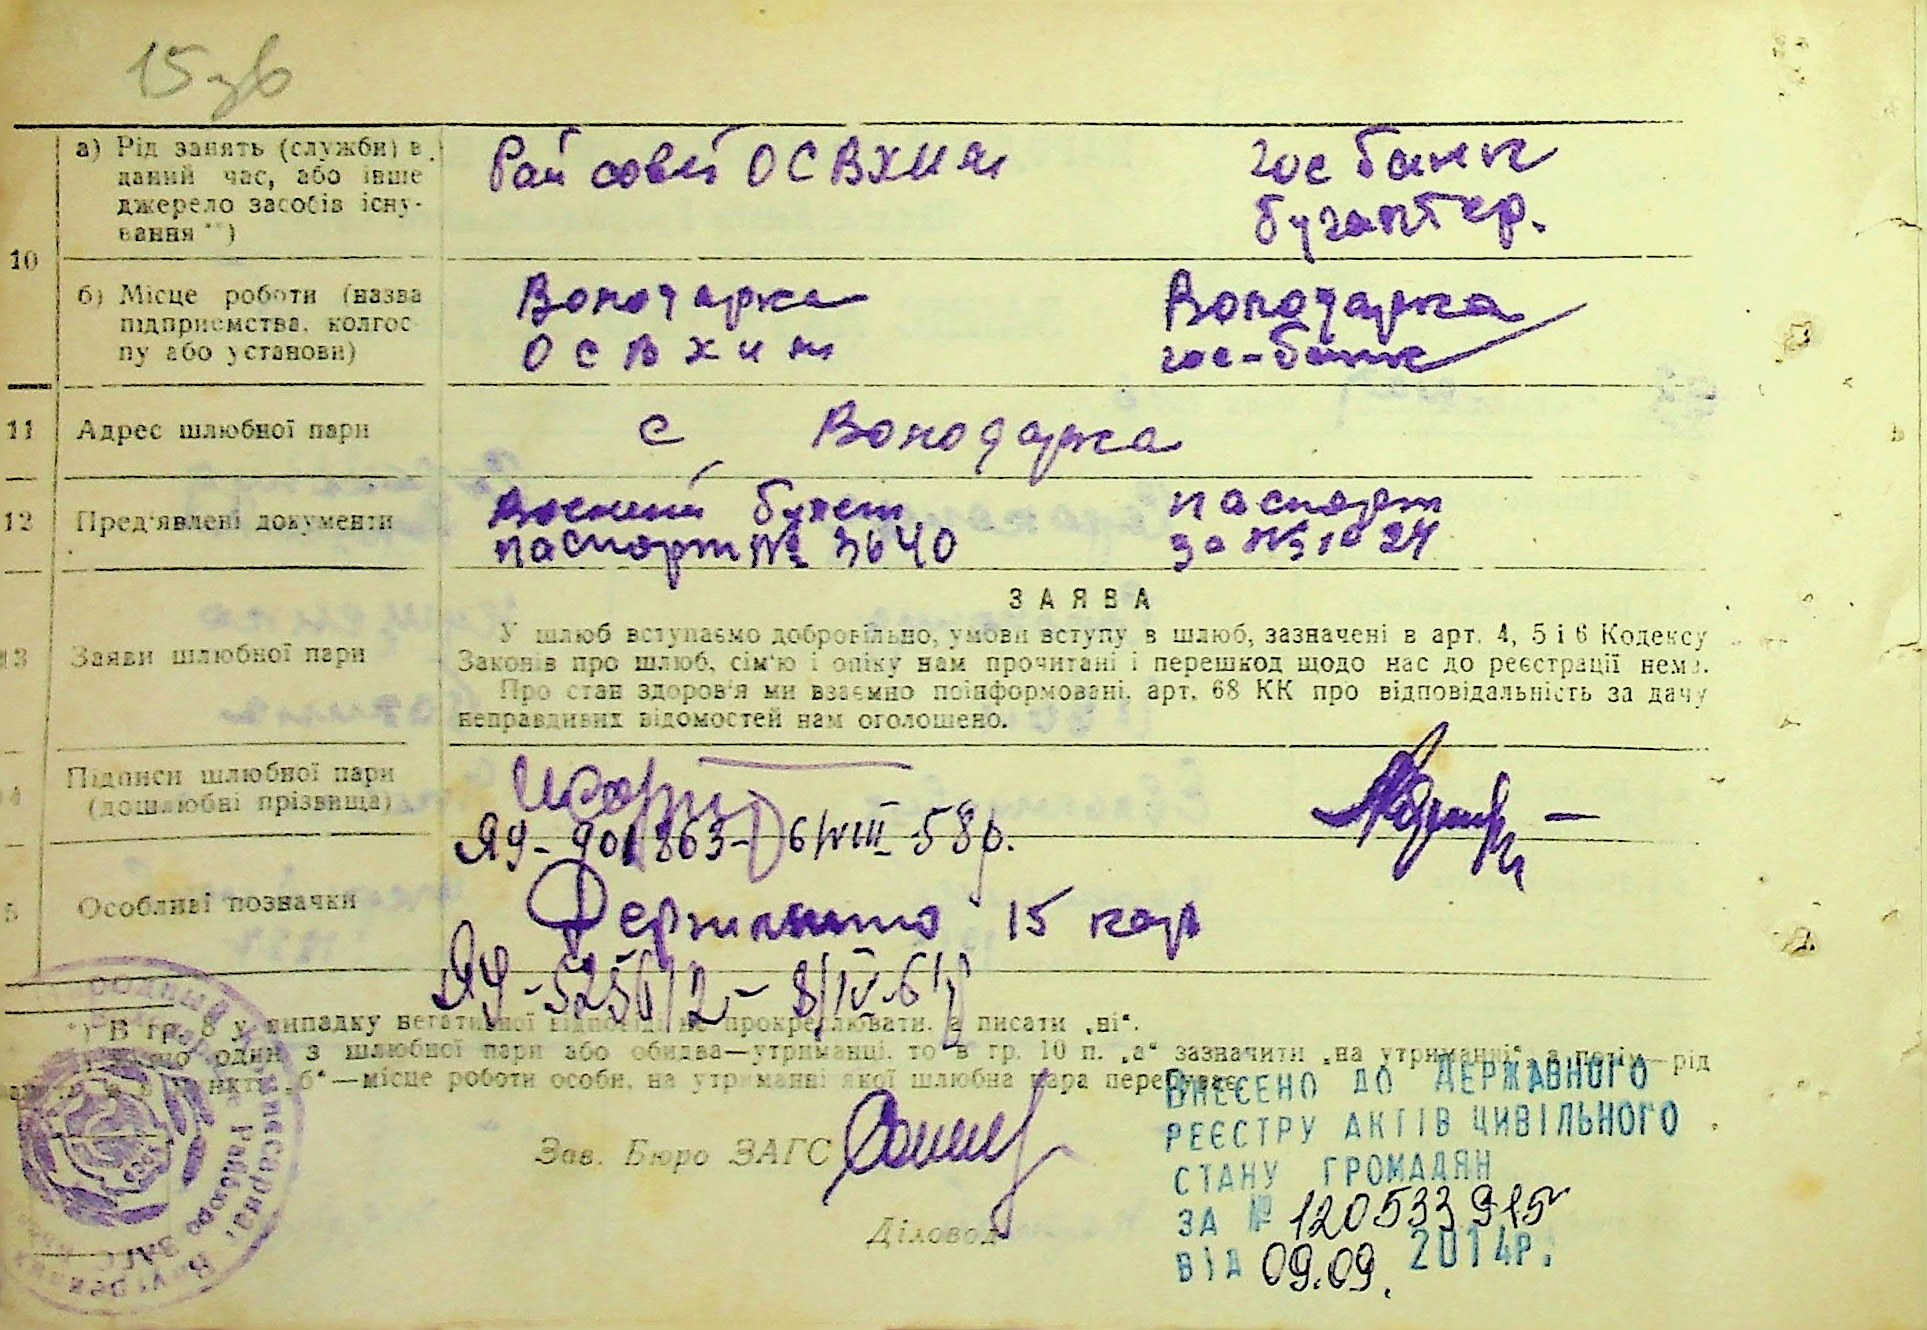 а) Рід занять (служби) в
даний час, або інше
джерело засобів існу-
вання **)
Рай совет ОСВХИМ
гос банк
бугалтер.
10
б) Місце роботи (назва
підприємства, колгос-
пу або установи)
Володарка
ОСВХИМ
Володарка
гос-банк
11 Адрес шлюбної пари
с Володарка
12 Пред'явлені документи
Военний билет
паспорт №
паспорт
за №
ЗАЯВА
13 Заяви шлюбної пари
У шлюб вступаємо добровільно, умови вступу в шлюб, зазначені в арт. 4, 5 і 6 Кодексу
Законів про шлюб, сім'ю і опіку нам прочитані і перешкод щодо нас до реєстрації нема.
Про стан здоров'я ми взаємно поінформовані, арт. 68 КК про відповідальність за дачу
неправдивих відомостей нам оголошено.
Підписи шлюбної пари
(дошлюбні прізвища)
58 р.
Особливі позначки
15 кар
*) В гр. 8 у випадку негативної відповіді не прокреслювати, а писати „ні“.
один з шлюбної пари або обидва—утриманці, то в гр. 10 п. „а“ зазначити „на утриманні“, а потім—рід
„б“—місце роботи особи, на утриманні якої шлюбна пара перебуває.
Зав. Бюро ЗАГС
Діловод
ВНЕСЕНО ДО ДЕРЖАВНОГО
РЕЄСТРУ АКТІВ ЦИВІЛЬНОГО
СТАНУ ГРОМАДЯН
ЗА № 120533915
ВІД 09.09. 2014р.